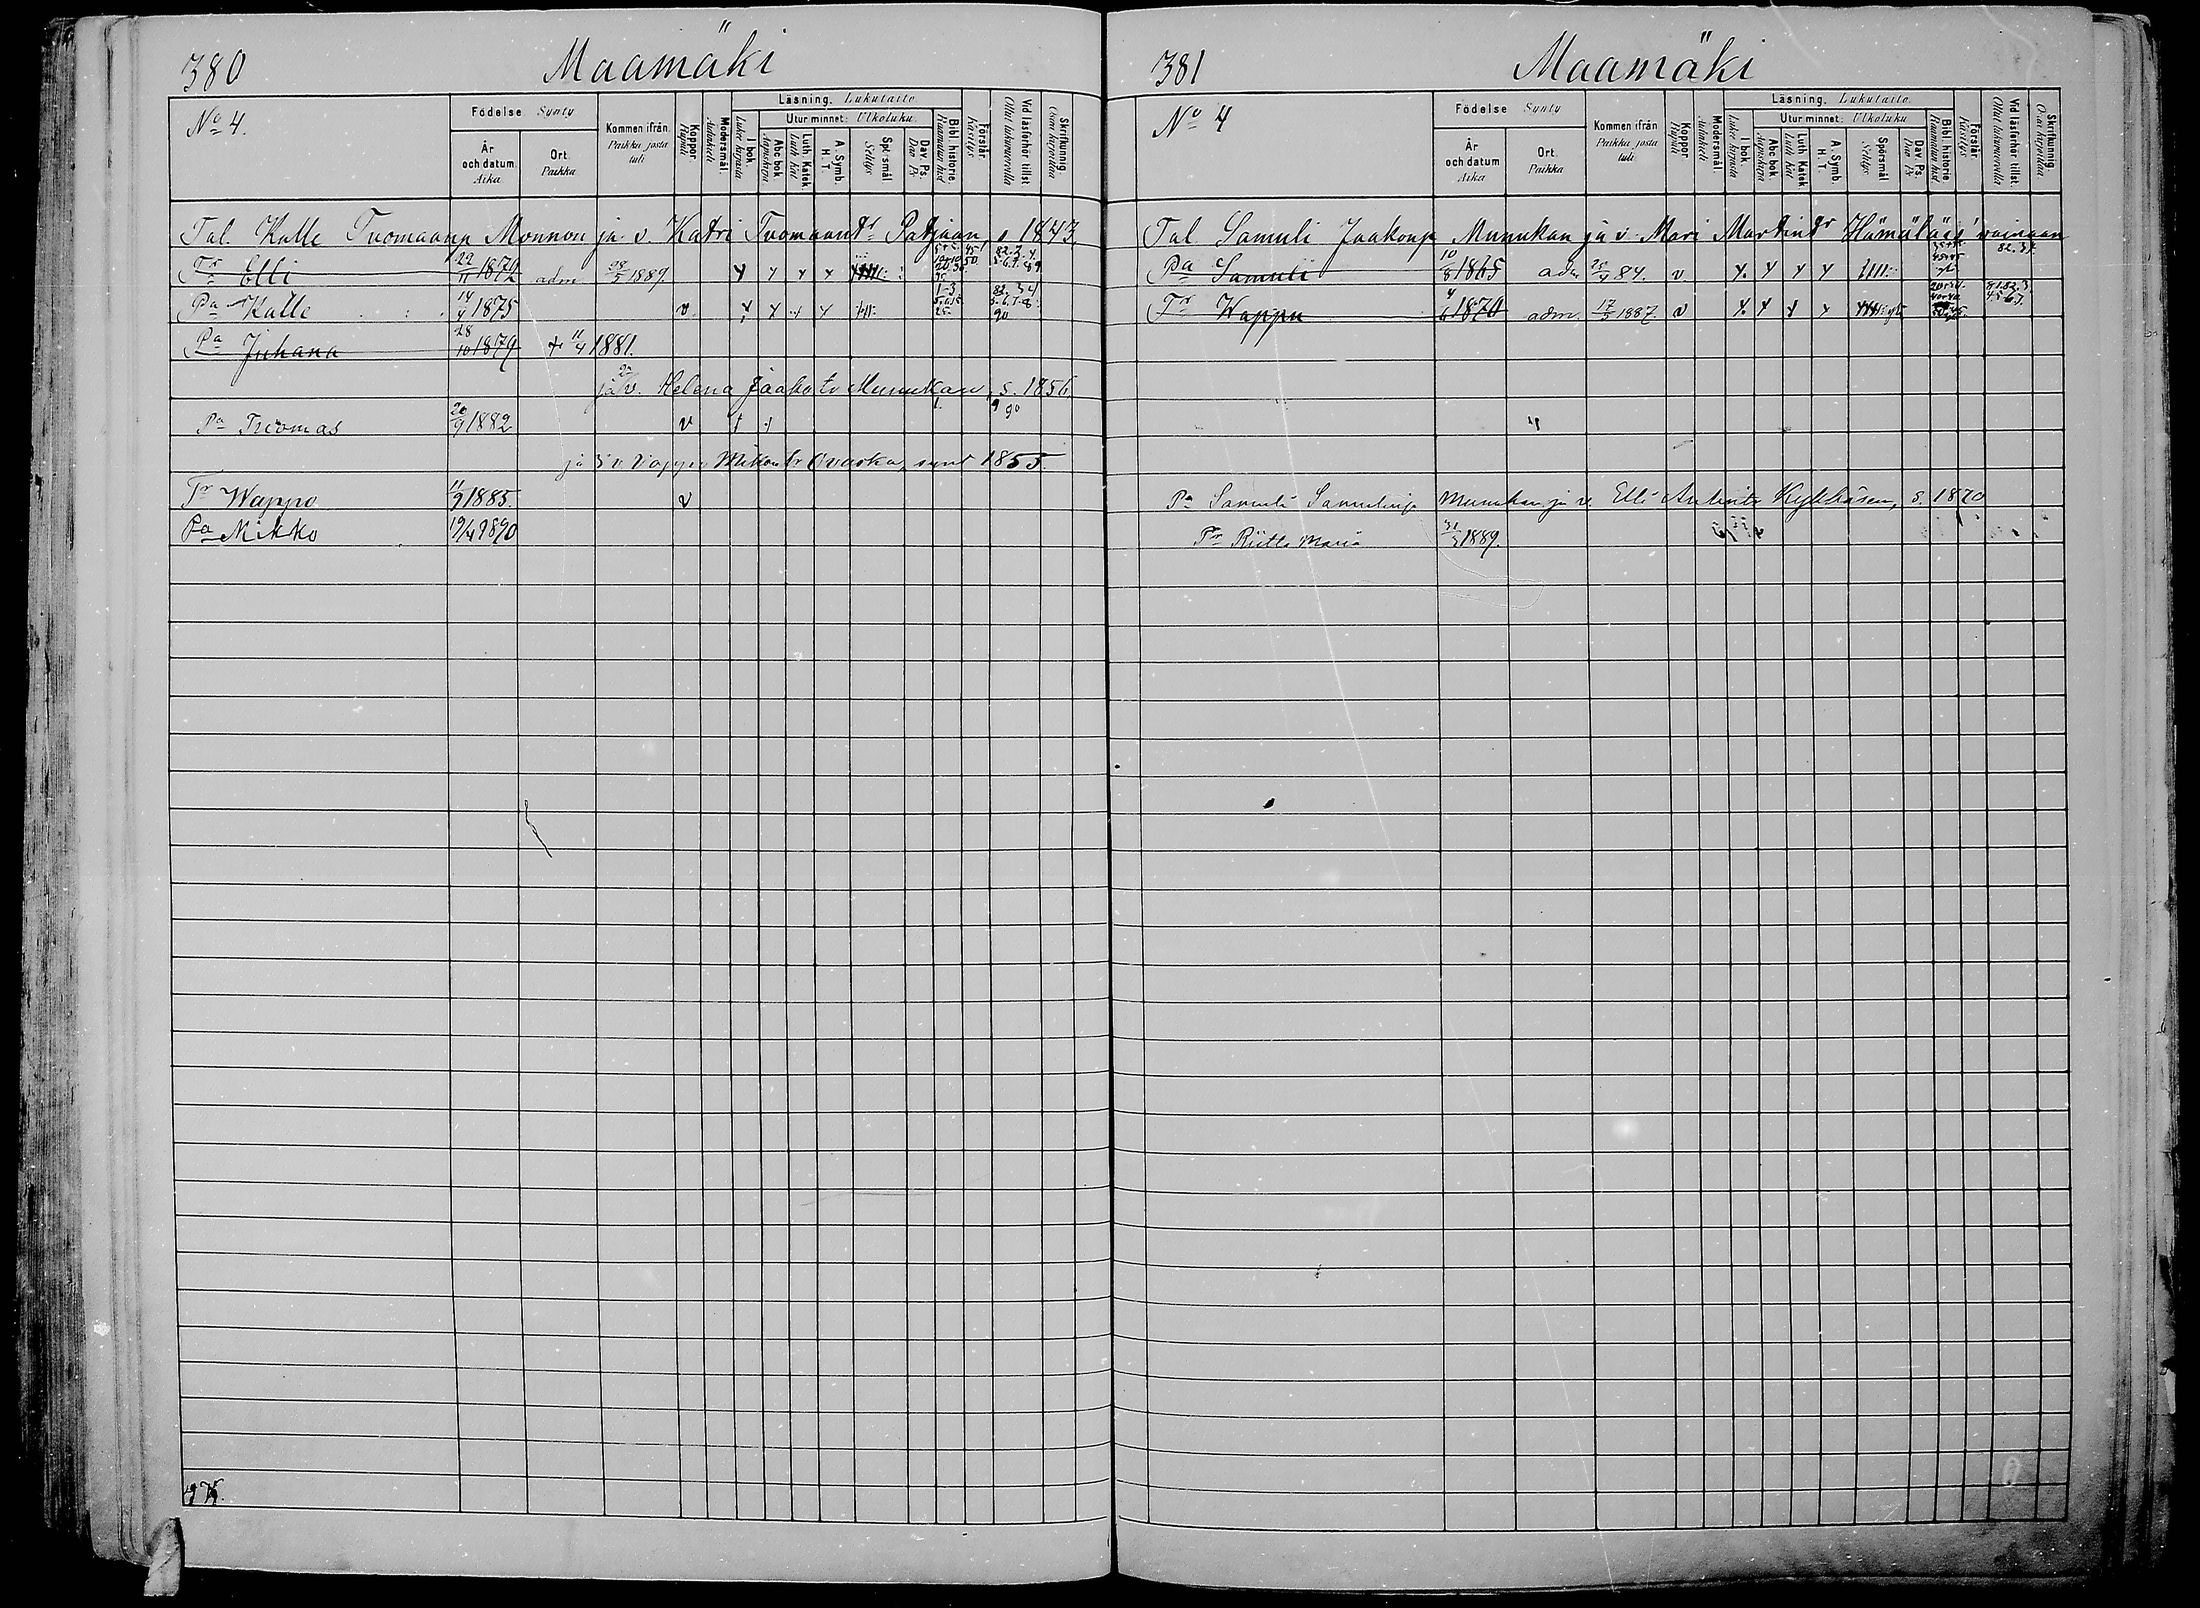 380 Maamäki
No 4.
Födelse Synty
År och datum. Aika
Ort. Paikka
Kommen ifrån. Paikka josta tuli
Koppor. Rupuli
Modersmål. Äidinkieli
Läsning. Lukutaito
I bok Lukee kirjasta
Utur minnet: Ulkoluku.
Abc bok Aapiskirja
Luth. Katek. Luth. Kat.
A. Symb. H. T.
Spörsmål Selitys
Dav. Ps. Dav. Ps.
Bibl historie. Raamatun hist.
Förstår. Käsitys
Vid läsförhör tillst. Ollut lukuvuorolla
Skrifkunnig. Osaa kirjoittaa
Tal. Kalle Tuomaanp Monnon ja v. Katri Tuomaantr Patjaan s 1843
Tr Elli 22/11 1872 adm 28/5 1889.
Pa Kalle 14/4 1875 v
Pa Juhana 28/10 1879 + 11/4 1881.
ja v. Helena Jaako tr Munukan, s. 1856
Pa Tuomas 20/9 1882 v
ja 3 v Mikontr synt 1855.
Tr Wappo 11/9 1885. v
Pa Mikko 19/4 1890
381 Maamäki
No 4
Födelse Synty
År och datum Aika
Ort. Paikka
Kommen ifrån Paikka josta tuli
Koppor Rupuli
Modersmål. Äidinkieli
Läsning. Lukutaito
I bok Lukee kirjasta
Utur minnet: Ulkoluku
Abc bok. Aapiskirja
Luth. Katek Luth. Kat
A. Symb. H. T.
Spörsmål Selitys
Dav. Ps. Dav. Ps.
Bibl historie Raamatun hist.
Förstår. Käsitys
Vid läsförhör tillst. Ollut lukuvuorolla
Skrifkunnig. Osaa kirjoittaa
Tal. Samuli Jaakonp Munukan ja v. Mari Martintr Hämäläis
Pa Samuli 10/8 1865 adm 84. v.
Tr Wappu 4/6 1870 adm. 17/5 1887. v
Pa Samuli Samulinp Munukan ja v. Elli Antintr s. 1870
Tr Riitta Maria 1889.